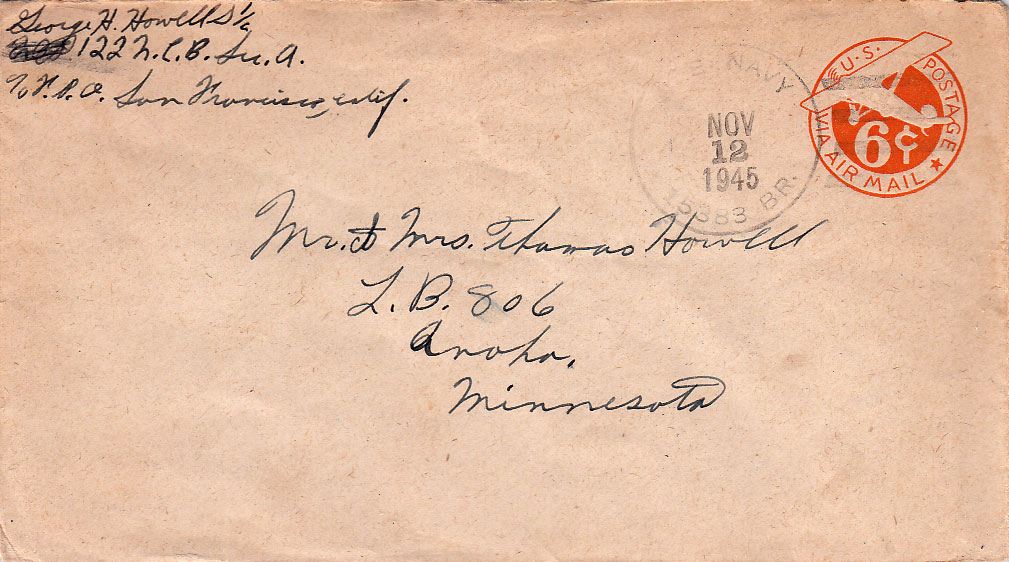 George H. Howell S 1/c
122 N.C.B. Sec. A.
℅ F.P.O. San Francisco, Calif.
U.S. POSTAGE
VIA AIR MAIL
6¢
NAVY
NOV
12
1945
15383 BR.
Mr. & Mrs. Thomas Howell
L. B. 806
Anoka,
Minnesota